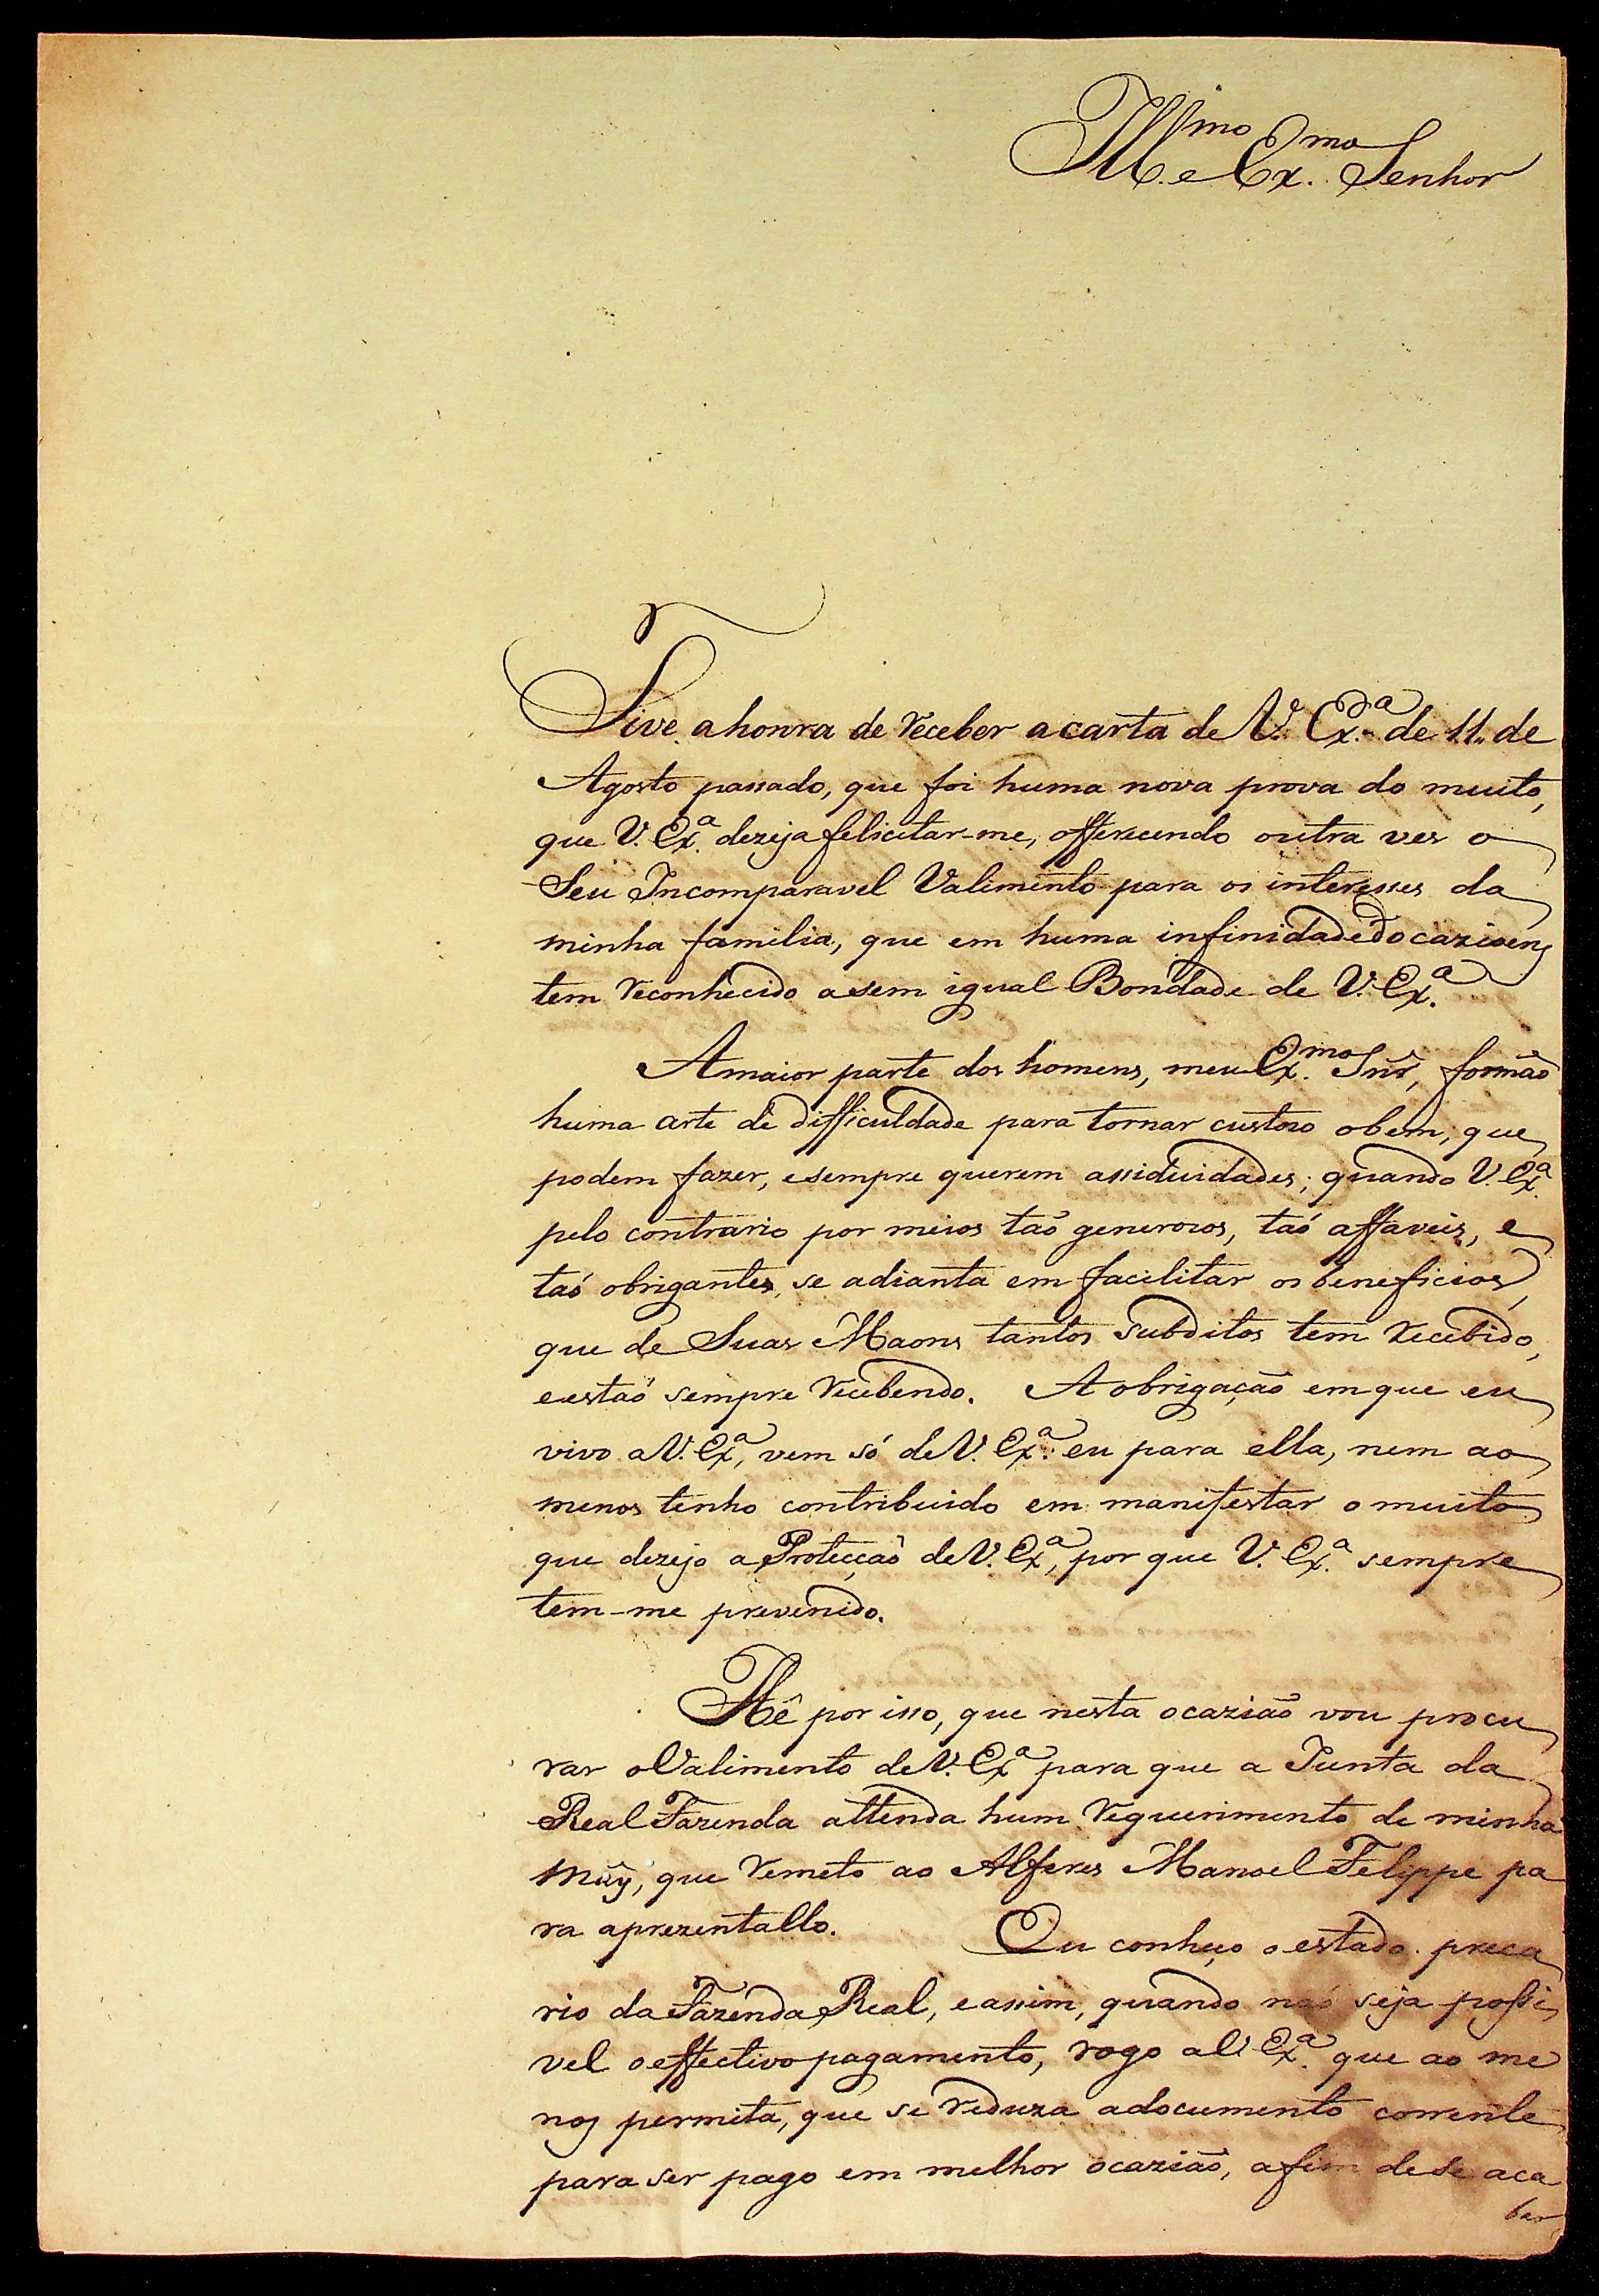 Ill.mo e Ex.mo Senhor
Tive a honra de receber a carta de V. Ex.a de 11,, de
Agosto passado, que foi huma nova prova do muito,
que V. Ex.a dezeja felicitar-me, offerecendo outra ves o
Seu Incomparavel Valimento para os interesses da
minha familia, que em huma infinidade d'ocazioens
tem reconhecido a sem igual Bondade de V. Ex.a
A maior parte dos homens, meu Ex.mo Snr̃, formaõ
huma arte de difficuldade para tornar custozo o bem, que
podem fazer, e sempre querem assiduidades; quando V. Ex.a
pelo contrario por meios taõ generozos, taõ affaveis, e
taõ obrigantes, se adianta em facilitar os beneficios,
que de Suas Maons tantos subditos tem recebido,
e estaõ sempre recebendo. A obrigaçaõ em que eu
vivo a V. Ex.a, vem só de V. Ex.a: eu para ella, nem ao
menos tenho contribuido em manifestar o muito
que dezejo a Protecçaõ de V. Ex.a, por que V. Ex.a sempre
tem-me prevenido.
Hê por isso, que nesta ocaziaõ vou procu
rar o Valimento de V. Ex.a para que a Junta da
Real Fazenda attenda hum requerimento de minha
Mãy, que remeto ao Alferes Manoel Felippe pa
ra aprezentallo. Eu conheço o estado preca
rio da Fazenda Real, e assim, quando naõ seja possi
vel o effectivo pagamento, rogo a V. Ex.a que ao me
nos permita, que se reduza a documento corrente
para ser pago em melhor ocaziaõ, a fim de se aca
bar